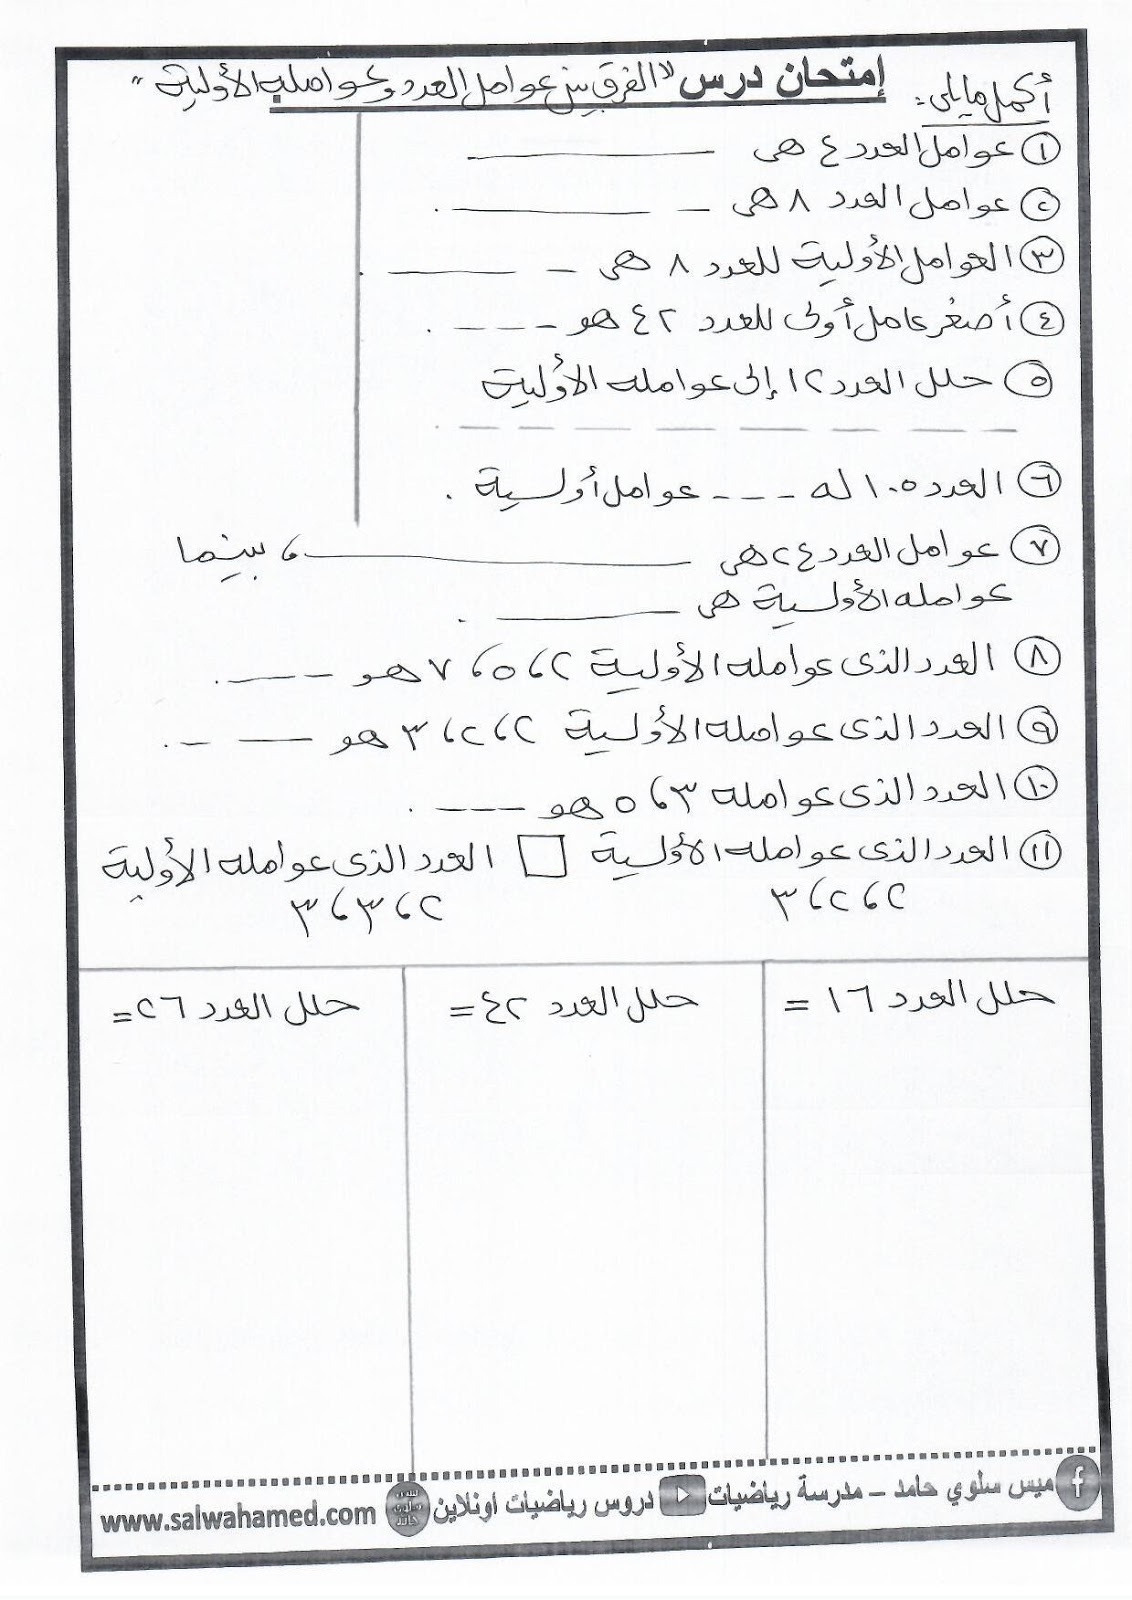 إمتحان درس "الفرق بين عوامل العدد وعوامله الأولية"
أكمل مايلى:
١ عوامل العدد ٤ هى
٢ عوامل العدد ٨ هى
٣ العوامل الأولية للعدد ٨ هى
٤ أصغر عامل أولى للعدد ٤٢ هو
٥ حلل العدد ١٢ إلى عوامله الأولية
٦ العدد ١٠٥ له --- عوامل أولية .
٧ عوامل العدد ٢٤ هى ______ ، بينما
عوامله الأولية هى ______ .
٨ العدد الذى عوامله الأولية ٢ ، ٥ ، ٧ هو ---- .
٩ العدد الذى عوامله الأولية ٢ ، ٢ ، ٣ هو ---- .
١٠ العدد الذى عوامله ٣ ، ٥ هو ---- .
١١ العدد الذى عوامله الأولية □ العدد الذى عوامله الأولية
٢ ، ٢ ، ٣ ٢ ، ٣ ، ٣
حلل العدد ١٦ = حلل العدد ٤٢ = حلل العدد ٢٦ =
ميس سلوي حامد – مدرسة رياضيات دروس رياضيات اونلاين www.salwahamed.com